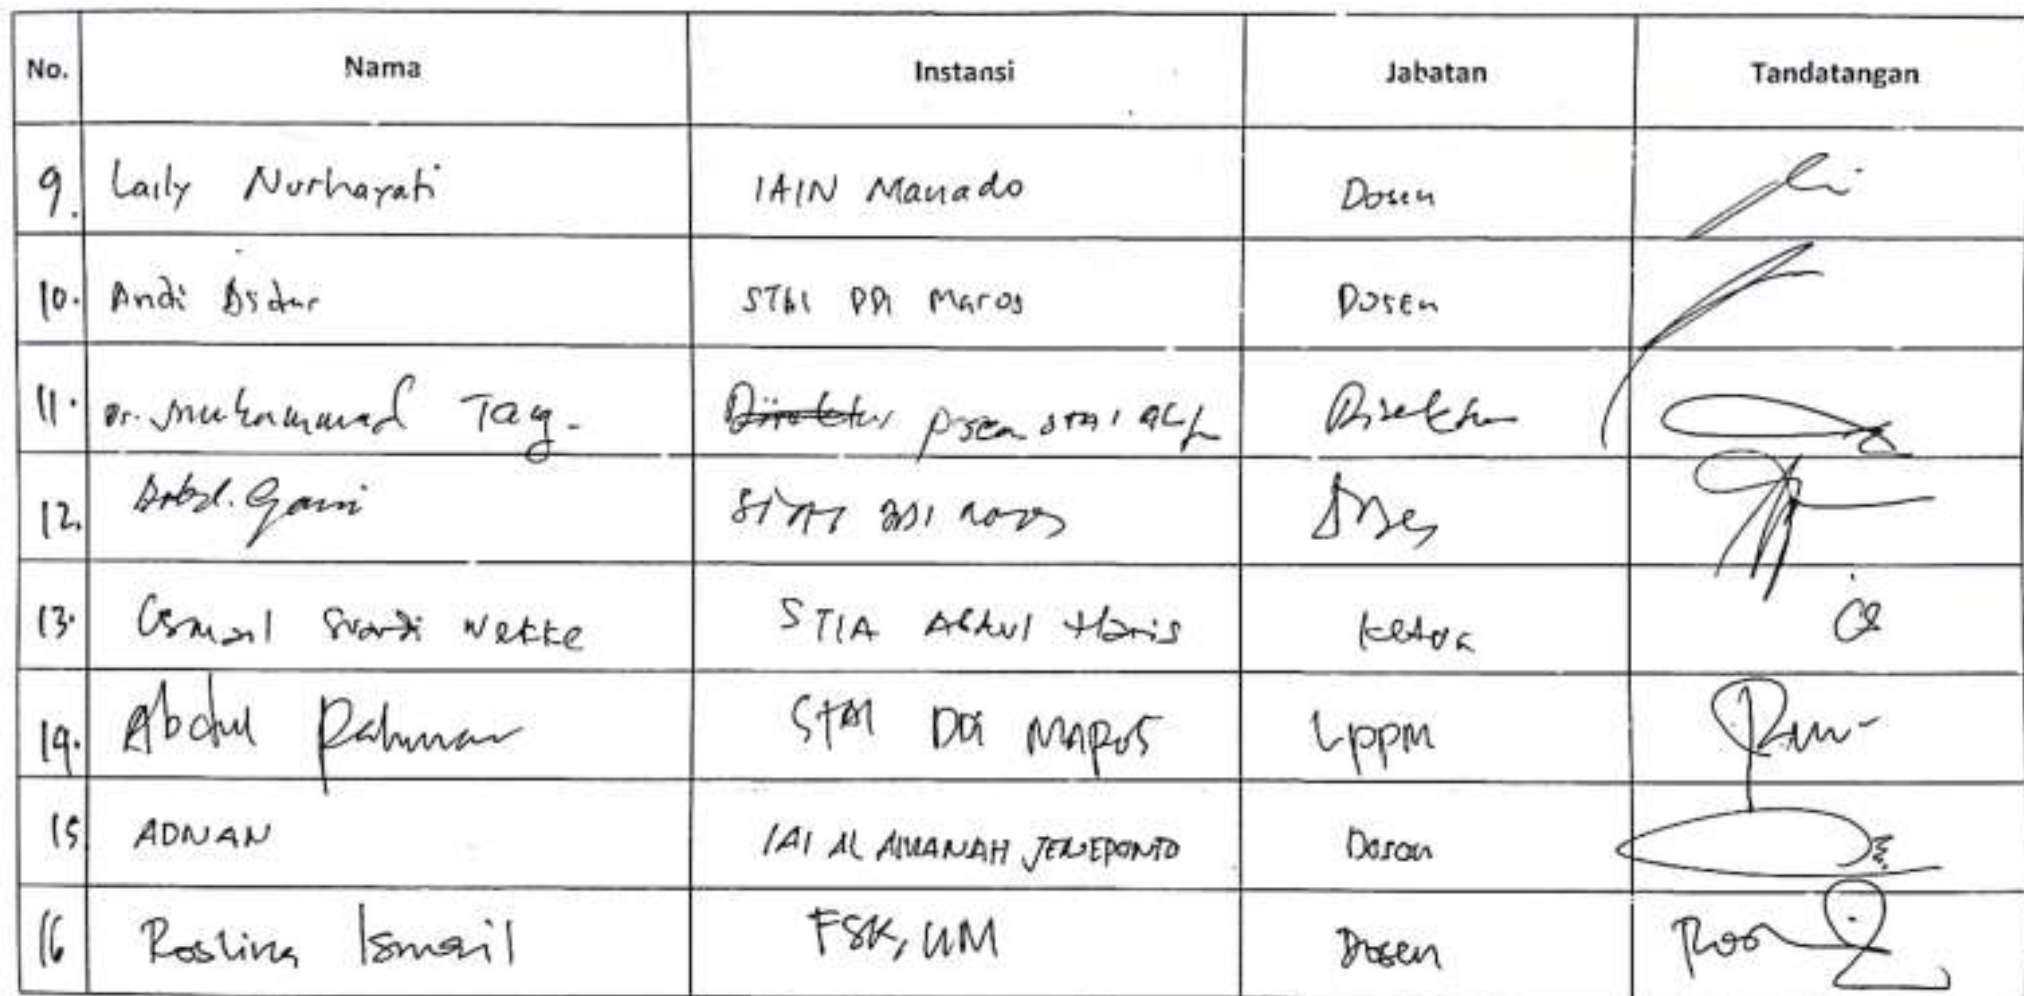 No. Nama Instansi Jabatan Tandatangan
9. Laily Nurhayati IAIN Manado Dosen
10. Andi Asdar STAI DDI Maros Dosen
11. Dr. Muhammad Taq. Direktur STAI Direktur
12. Abd. Gani
13. Ismail Suardi Wekke STIA Abdul Haris Ketua
14. Abdul Rahman STAI DDI MAROS LPPM
15 ADNAN IAI AL AMANAH JENEPONTO Dosen
16 Roslina Ismail FSK, UM Dosen